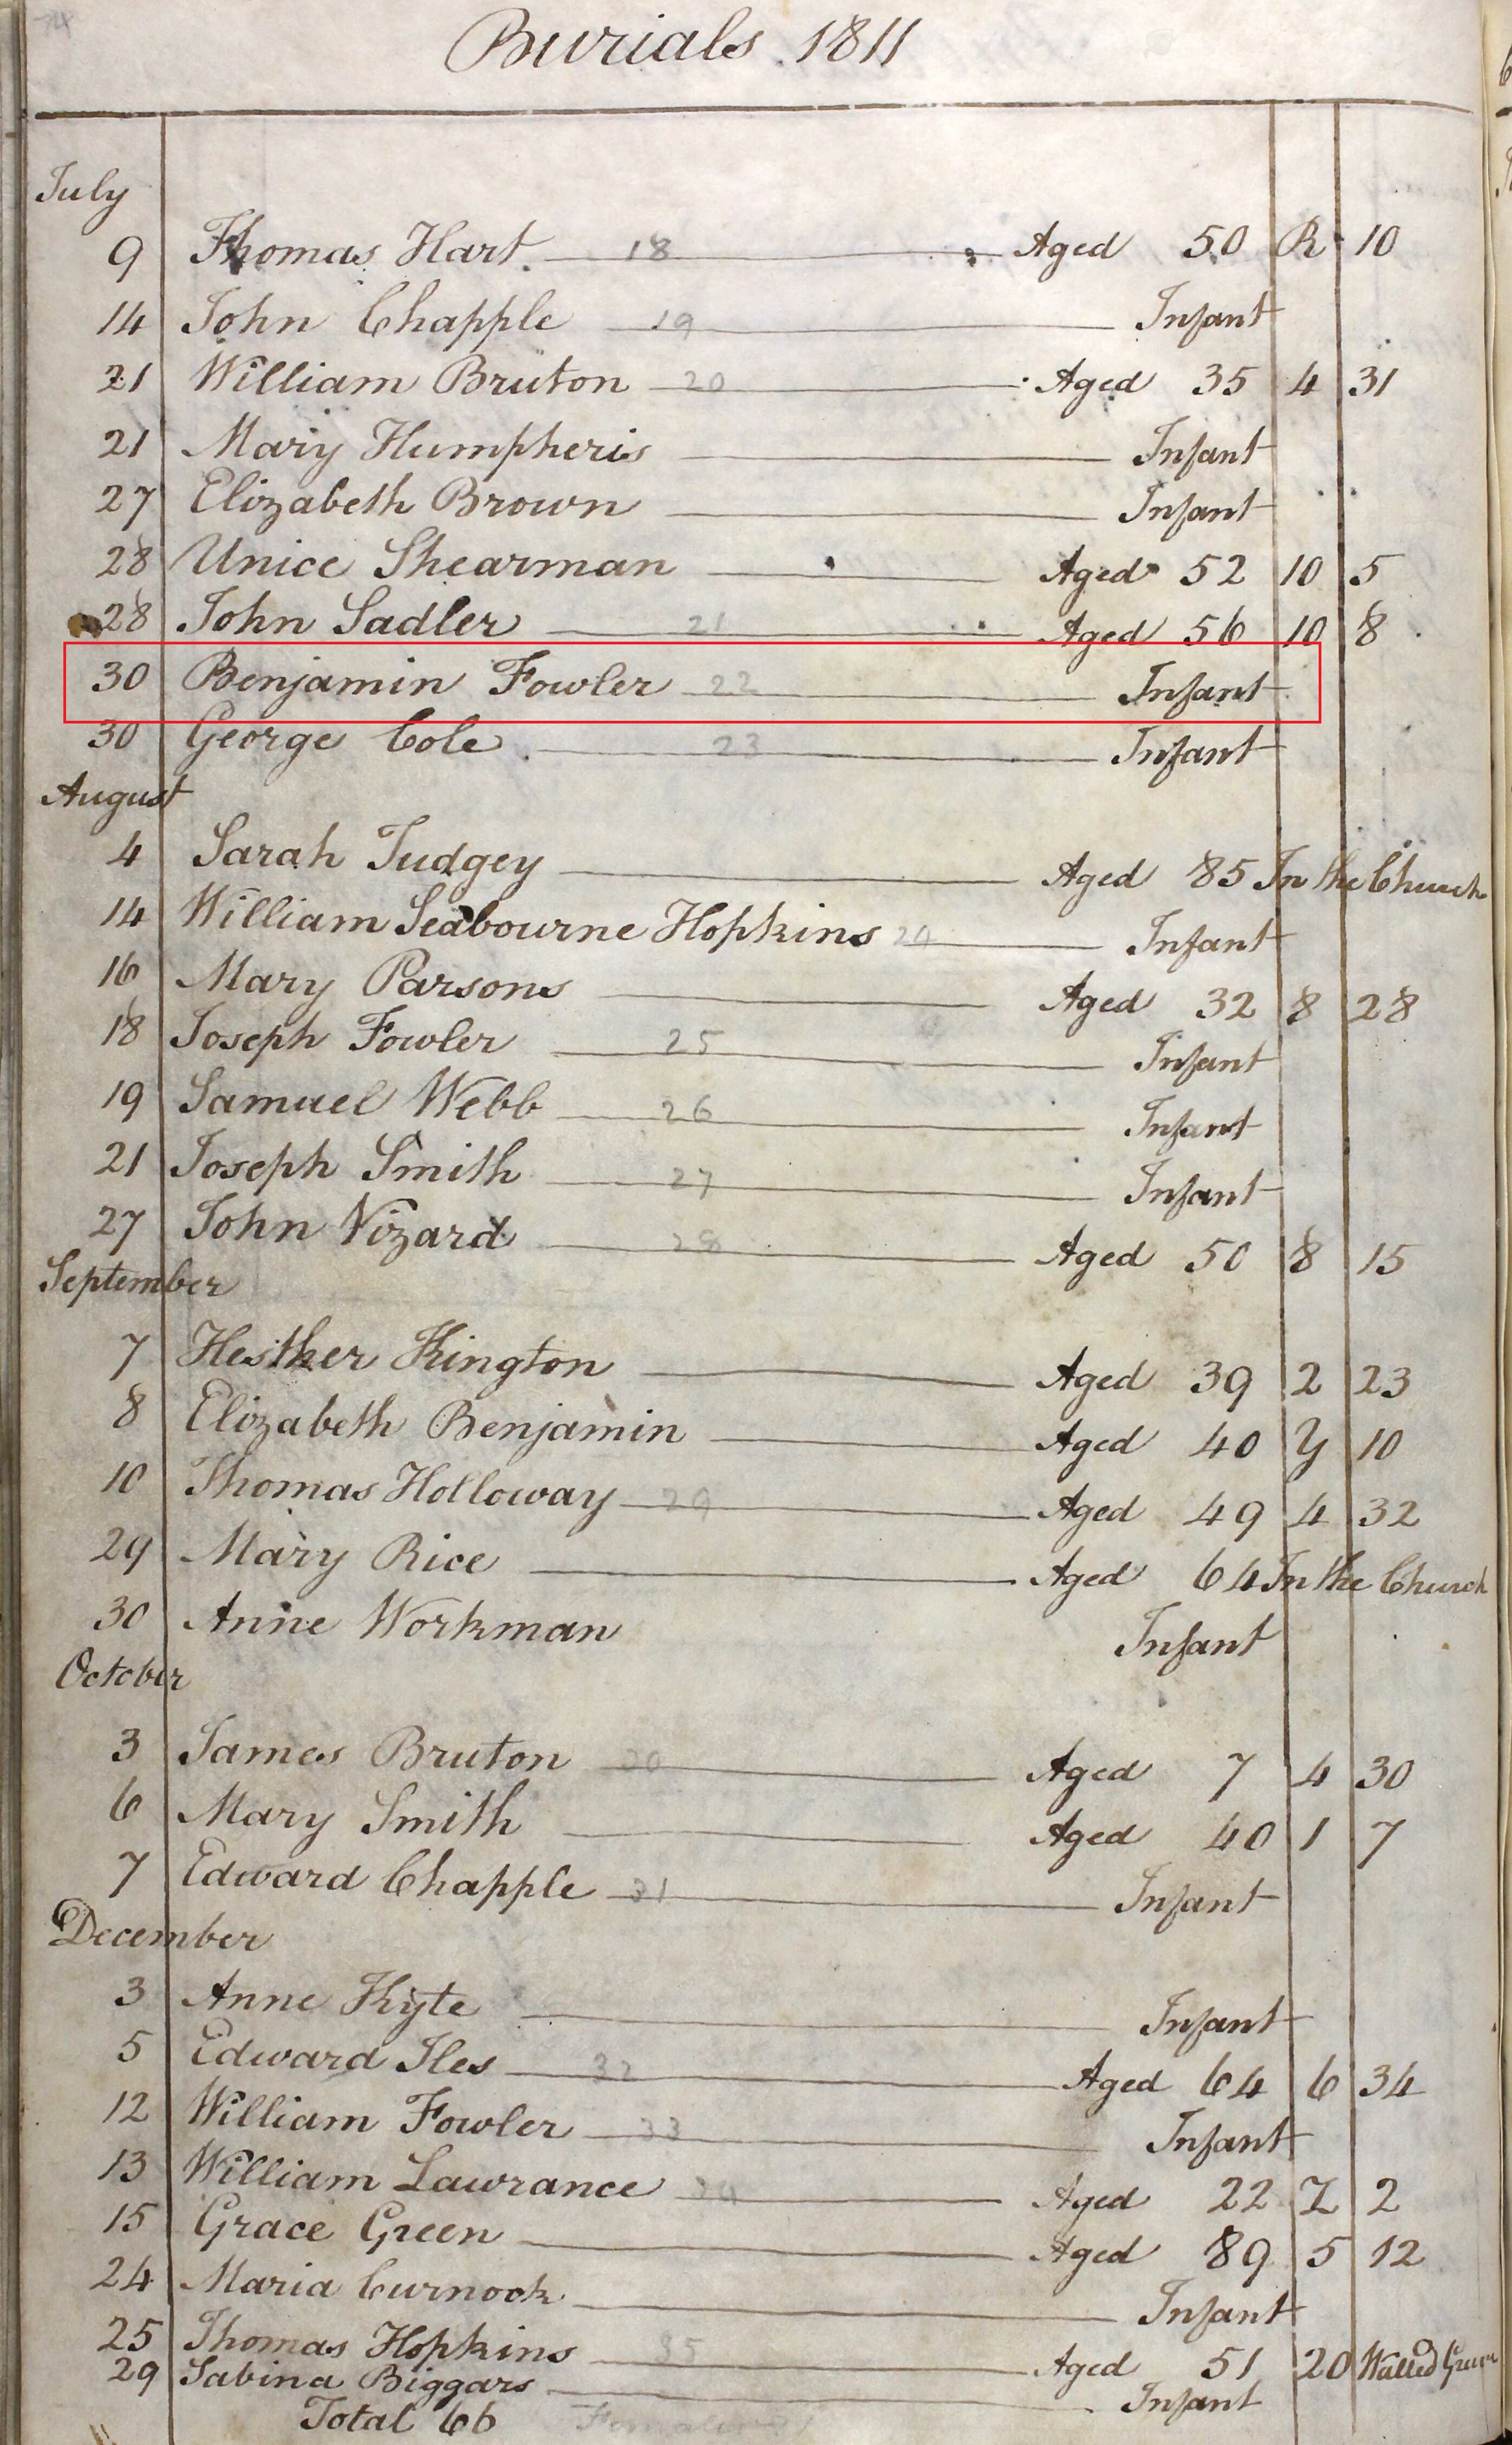 Burials 1811
July
9 Thomas Hart. 18 Aged 50 R 10
14 John Chapple 19 Infant
21 William Bruton 20 Aged 35 4 31
21 Mary Humpheris Infant
27 Elizabeth Brown Infant
28 Unice Shearman Aged 52 10 5
28 John Sadler 21 Aged 56 10 8
30 Benjamin Fowler 22 Infant
30 George Cole 23 Infant
August
4 Sarah Tudgey Aged 85 In the Church
14 William Seabourne Hopkins 24 Infant
16 Mary Parsons Aged 32 8 28
18 Joseph Fowler 25 Infant
19 Samuel Webb 26 Infant
21 Joseph Smith 27 Infant
27 John Vizard 28 Aged 50 8 15
September
7 Hesther Kington Aged 39 2 23
8 Elizabeth Benjamin Aged 40 Y 10
10 Thomas Holloway 29 Aged 49 4 32
29 Mary Rice Aged 64 In the Church
30 Anne Workman Infant
October
3 James Bruton 30 Aged 7 4 30
6 Mary Smith Aged 40 1 7
7 Edward Chapple 31 Infant
December
3 Anne Kyte Infant
5 Edward Iles 32 Aged 64 6 34
12 William Fowler 33 Infant
13 William Lawrance 34 Aged 22 Z 2
15 Grace Green Aged 89 5 12
24 Maria Curnock Infant
25 Thomas Hopkins 35 Aged 51 20 Walled Grave
29 Sabina Biggars Infant
Total 66 Females